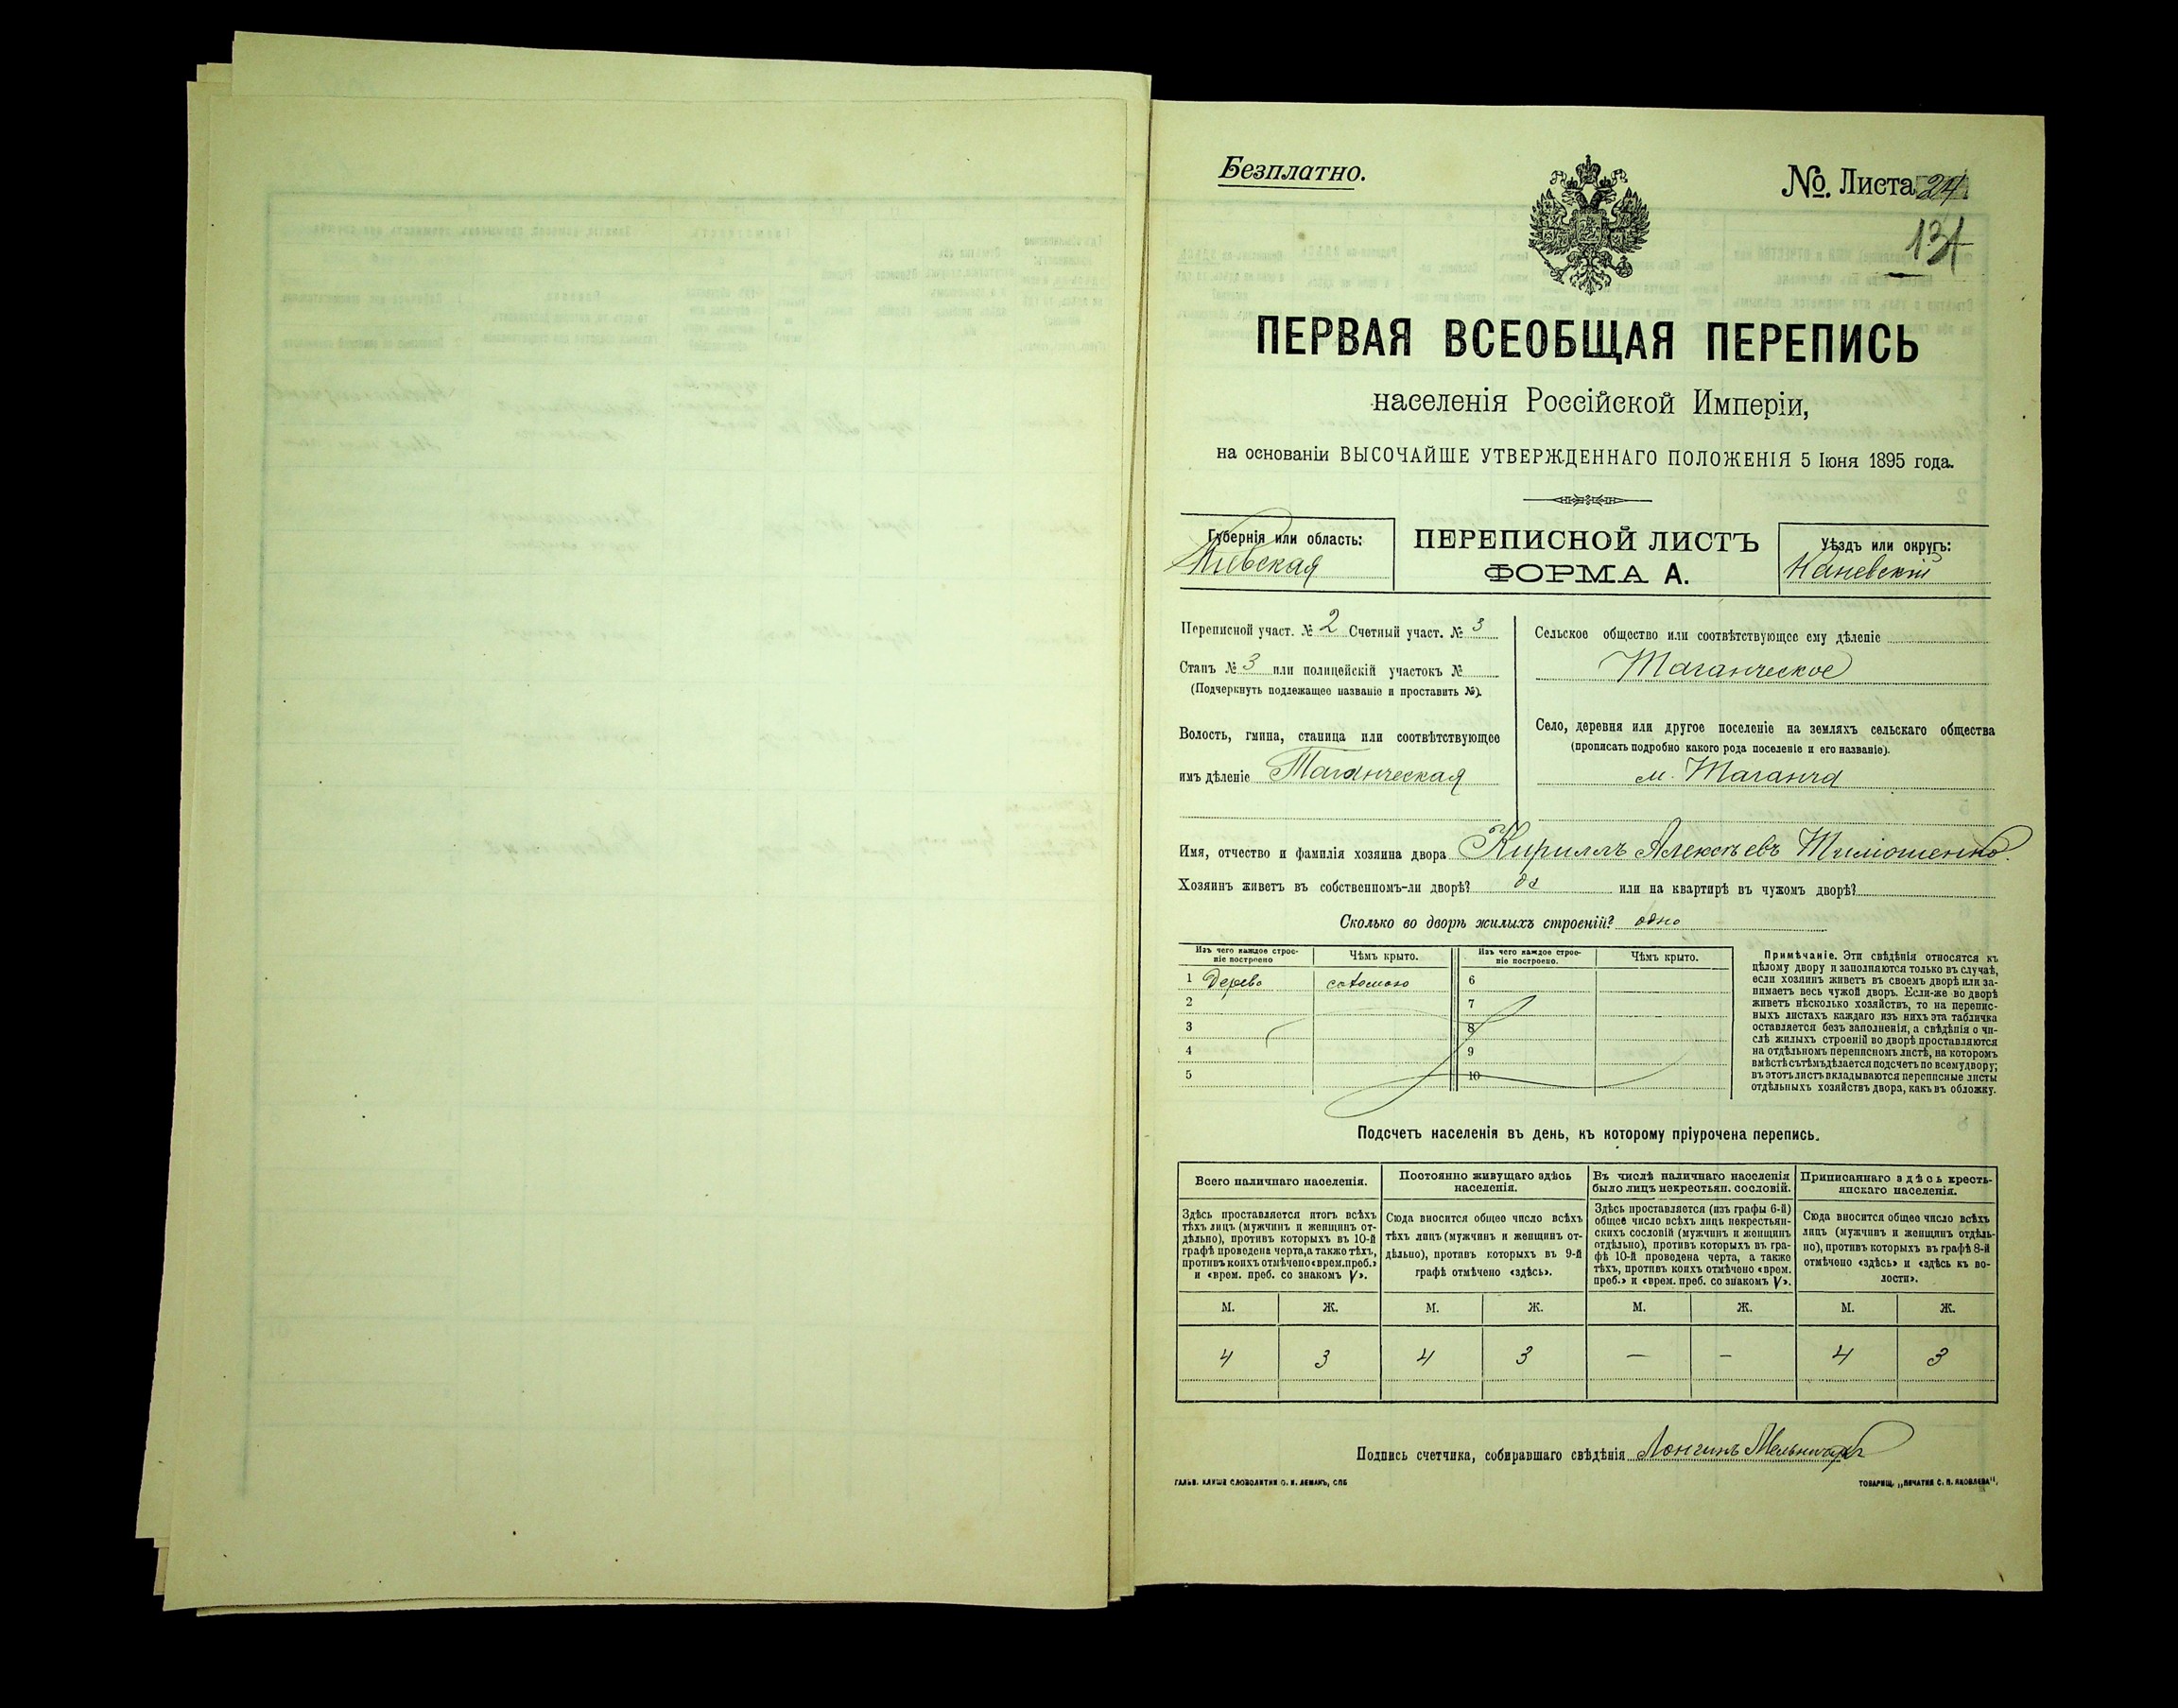 Безплатно.
№ Листа 24
131
ПЕРВАЯ ВСЕОБЩАЯ ПЕРЕПИСЬ
населенія Россійской Имперіи,
на основаніи ВЫСОЧАЙШЕ УТВЕРЖДЕННАГО ПОЛОЖЕНІЯ 5 Іюня 1895 года.
Губернія или область:
Кіевская
ПЕРЕПИСНОЙ ЛИСТЪ
ФОРМА А.
Уѣздъ или округъ:
Каневскій
Переписной участ. № 2 Счетный участ. № 3
Станъ № 3 или полицейскій участокъ №
(Подчеркнуть подлежащее названіе и проставить №).
Волость, гмина, станица или соотвѣтствующее
имъ дѣленіе Таганческая
Сельское общество или соотвѣтствующее ему дѣленіе
Таганческое
Село, деревня или другое поселеніе на земляхъ сельскаго общества
(прописать подробно какого рода поселеніе и его названіе).
м. Таганча
Имя, отчество и фамилія хозяина двора Кириллъ Алексѣевъ Тимошенко.
Хозяинъ живетъ въ собственномъ-ли дворѣ? да или на квартирѣ въ чужомъ дворѣ?
Сколько во дворѣ жилыхъ строеній? одно
Изъ чего каждое строе-
ніе построено
Чѣмъ крыто.
Изъ чего каждое строе-
ніе построено.
Чѣмъ крыто.
1 дерево соломою 6
2 7
3 8
4 9
5 10
Примѣчаніе. Эти свѣдѣнія относятся къ
цѣлому двору и заполняются только въ случаѣ,
если хозяинъ живетъ въ своемъ дворѣ или за-
нимаетъ весь чужой дворъ. Если-же во дворѣ
живетъ нѣсколько хозяйствъ, то на перепис-
ныхъ листахъ каждаго изъ нихъ эта табличка
оставляется безъ заполненія, а свѣдѣнія о чи-
слѣ жилыхъ строеній во дворѣ проставляются
на отдѣльномъ переписномъ листѣ, на которомъ
вмѣстѣ съ тѣмъ дѣлается подсчетъ по всему двору;
въ этотъ листъ вкладываются переписные листы
отдѣльныхъ хозяйствъ двора, какъ въ обложку.
Подсчетъ населенія въ день, къ которому пріурочена перепись.
Всего наличнаго населенія.
Здѣсь проставляется итогъ всѣхъ
тѣхъ лицъ (мужчинъ и женщинъ от-
дѣльно), противъ которыхъ въ 10-й
графѣ проведена черта, а также тѣхъ,
противъ коихъ отмѣчено «врем. преб.»
и «врем. преб. со знакомъ V».
Постоянно живущаго здѣсь
населенія.
Сюда вносится общее число всѣхъ
тѣхъ лицъ (мужчинъ и женщинъ от-
дѣльно), противъ которыхъ въ 9-й
графѣ отмѣчено «здѣсь».
Въ числѣ наличнаго населенія
было лицъ некрестьян. сословій.
Здѣсь проставляется (изъ графы 6-й)
общее число всѣхъ лицъ некрестьян-
скихъ сословій (мужчинъ и женщинъ
отдѣльно), противъ которыхъ въ гра-
фѣ 10-й проведена черта, а также
тѣхъ, противъ коихъ отмѣчено «врем.
преб.» и «врем. преб. со знакомъ V».
Приписаннаго здѣсь кресть-
янскаго населенія.
Сюда вносится общее число всѣхъ
лицъ (мужчинъ и женщинъ отдѣль-
но), противъ которыхъ въ графѣ 8-й
отмѣчено «здѣсь» и «здѣсь къ во-
лости».
М. Ж. М. Ж. М. Ж. М. Ж.
4 3 4 3 — — 4 3
Подпись счетчика, собиравшаго свѣдѣнія Лонгинъ
ГАЛЬВ. КЛИШЕ СЛОВОЛИТНИ О. И. ЛЕМАНЪ, СПБ
ТОВАРИЩ. „ПЕЧАТНЯ С. П. ЯКОВЛЕВА“.